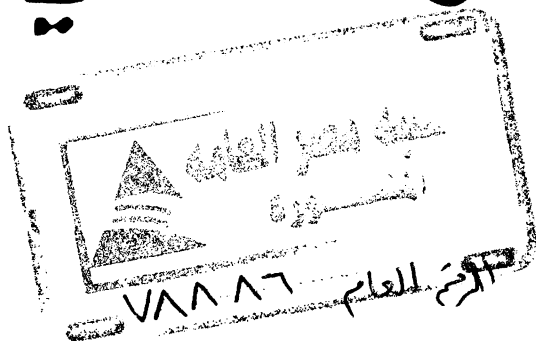 مكتبة مصر العامة
المنصورة
الرقم العام ٧٨٨٨٦